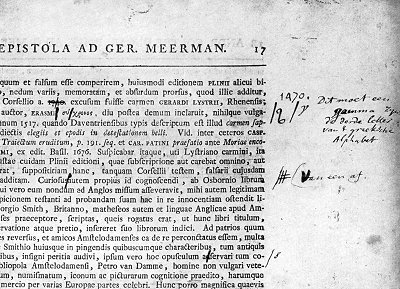 EPISTOLA AD GER. MEERMAN. 17
quum et falsum esse comperirem, huiusmodi editionem PLINII alicui bi-
, nedum variis, memoratam, et absurdum prorsus, quod illic additur,
Corsellio a. excusum fuisse carmen GERARDI LYSTRII, Rhenensis;
auctor, ERASMI diu postea demum inclaruit, nihilque vulga-
nnum 1517. quando Daventriensibus typis descriptum est carmen
dictis elegiis et epodis in detestationem belli. Vid. inter ceteros CASP.
Traiectum eruditum, p. 191. seq. et CAR. PATINI praefatio ante Moriae enco-
MI, ex edit. Basil. 1676. Suspicabar itaque, uti Lystriano carmini, ita
istae cuidam Plinii editioni, quae subscriptione aut carebat omnino, aut
rat, suppositiriam hanc, tanquam Corsellii testem, falsarii cuiusdam
additam. Curiosius autem propius id cognoscendi, ab Osbornio libram
ui vero eum nondum ad Anglos missum asseveravit, mihi autem legitimam
scipionem testandi ad probandam suam hac in re innocentiam ostendit li-
orgio Smith, Britanno, matheseos autem et linguae Anglicae apud Am-
ses praeceptore, scriptas, queis rogatus erat, ut hunc libri titulum,
ervatione atque pretio, infereret suo librorum indici. Ad patrios quum
es reversus, et amicos Amstelodamenses ea de re percontatus essem, multa
Smithio huiusque in pingendis quibuscumque characteribus, tum antiquis
ibus, insigni peritia audivi, ipsum vero hoc opusculum asservari tum co-
oliopola Amstelodamensi, Petro van Damme, homine non vulgari vete-
um, numismatum, iconum ac picturarum cognitione praedito, harumque
mercio per varias Europae partes celebri. Hunc porro magnifica quaevis
1470.
Dit moet een
gamma zijn
de derde letter
van 't grieksche
Alphabet
Van een af.
/s